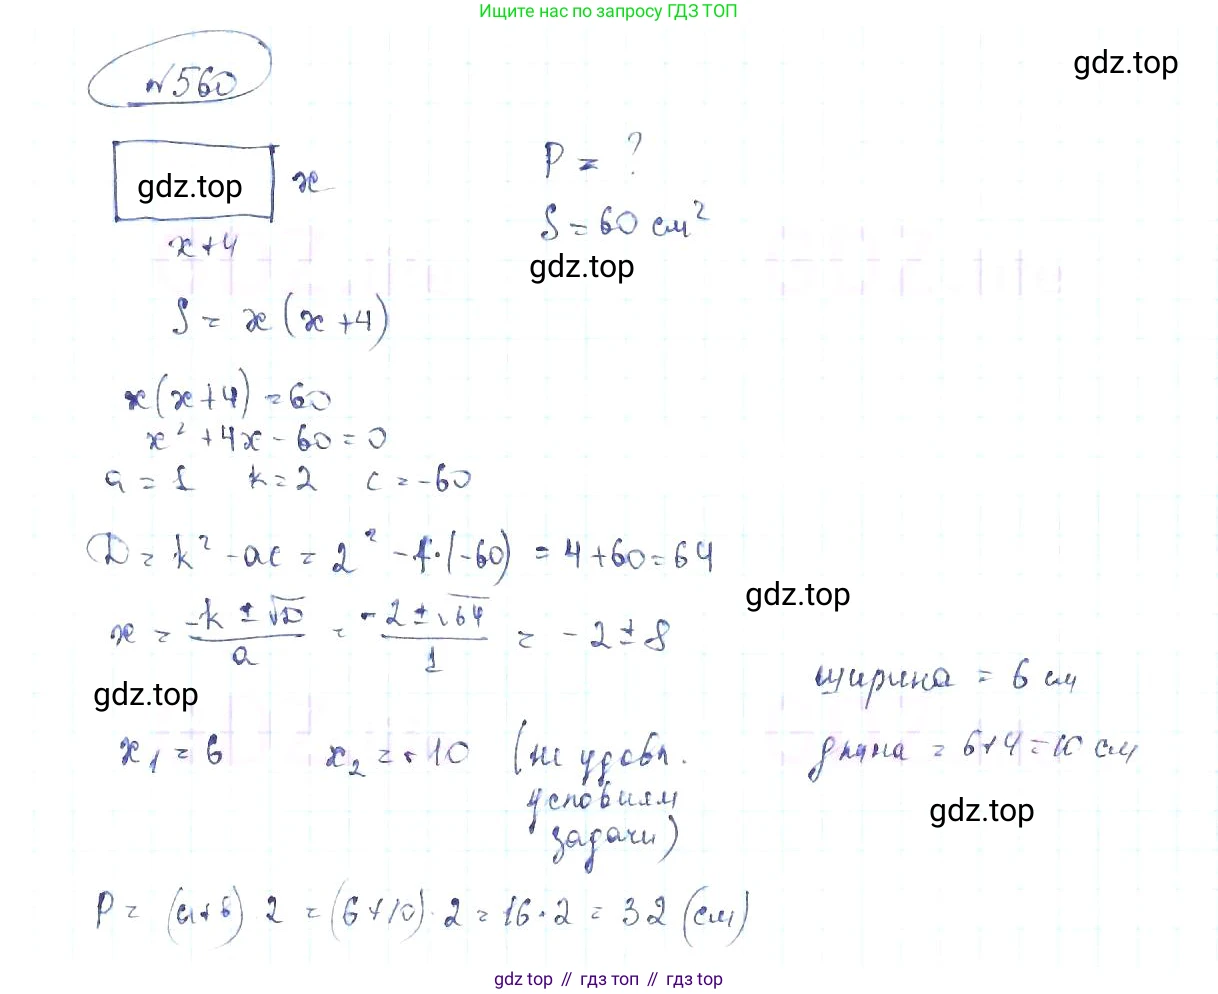 Ищите нас по запросу ГДЗ ТОП
gdz.top
№560
gdz.top
x
P = ?
x+4
S = 60 см²
gdz.top
S = x(x+4)
x(x+4) = 60
x² + 4x - 60 = 0
a = 1 k = 2 c = -60
D = k² - ac = 2² - 1·(-60) = 4 + 60 = 64
gdz.top
x = (-k ± √D)/a = (-2 ± √64)/1 = -2 ± 8
gdz.top
ширина = 6 см
x₁ = 6 x₂ = -10 (не удовл.
условиям
задачи)
длина = 6+4 = 10 см
gdz.top
P = (a+b) 2 = (6+10)·2 = 16·2 = 32 (см)
gdz top // гдз топ // гдз top